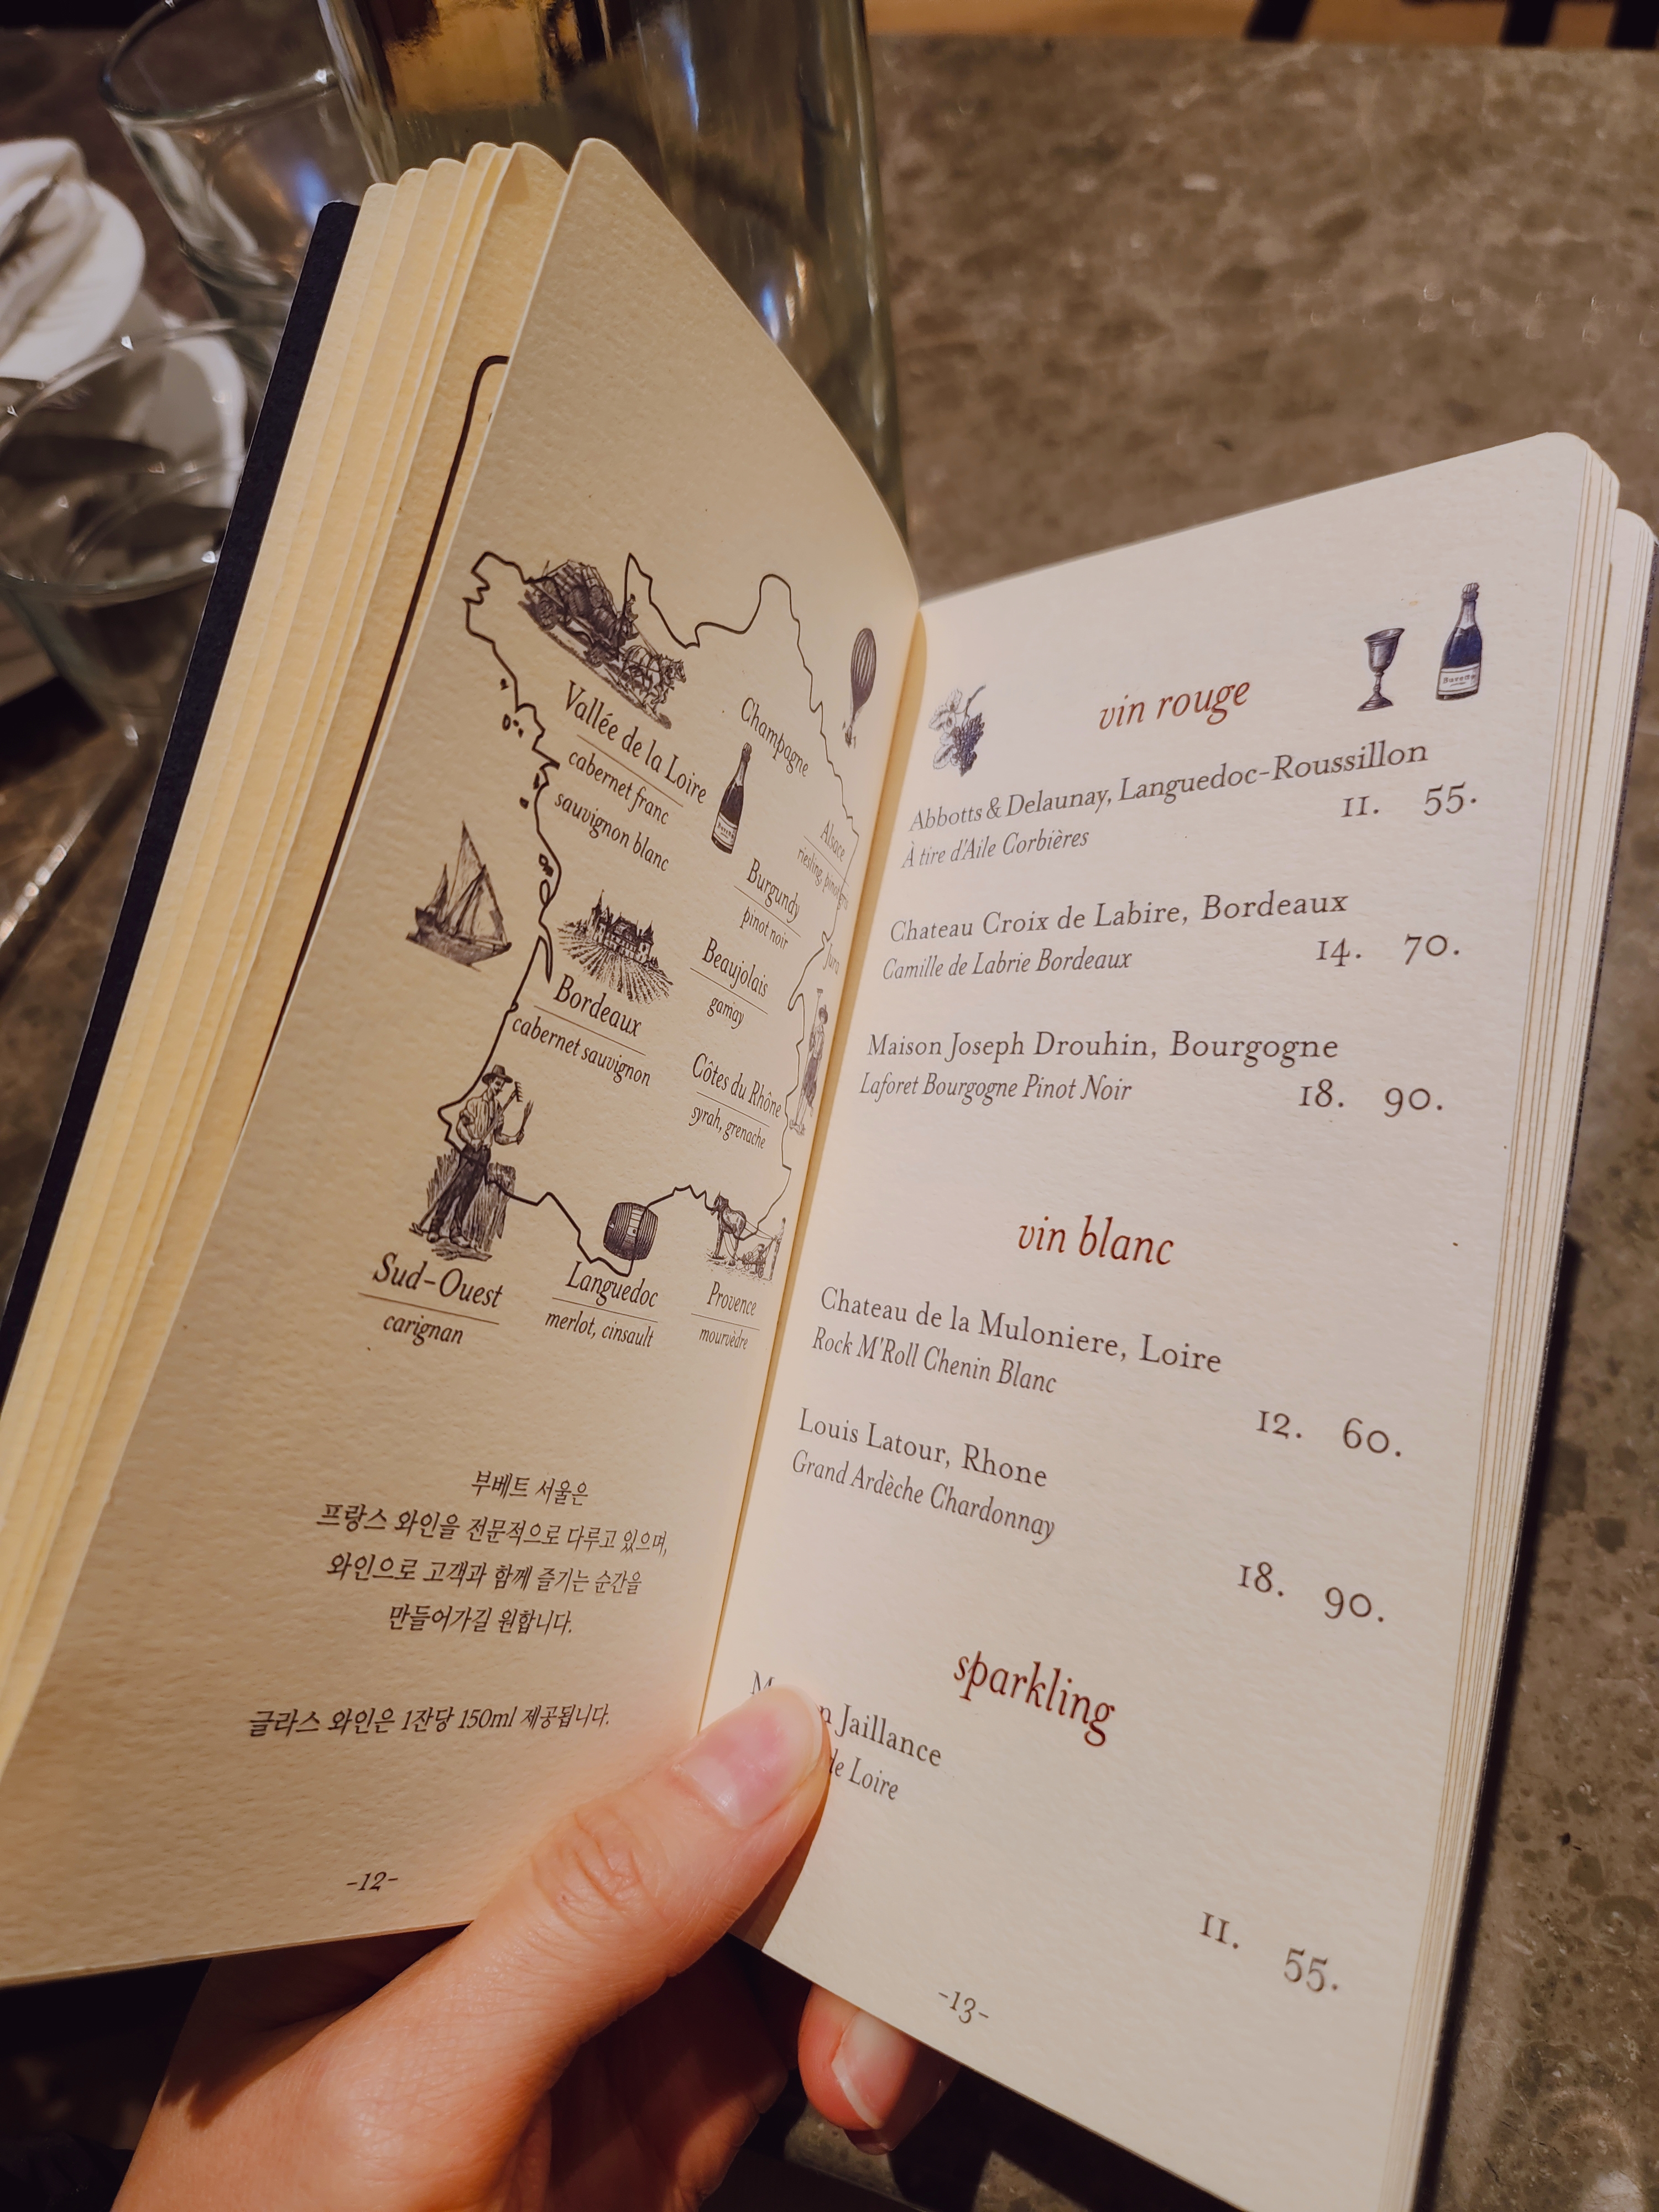 Vallée de la Loire
cabernet franc
sauvignon blanc
Champagne
Alsace
riesling,
Burgundy
pinot noir
Jura
Beaujolais
gamay
Bordeaux
cabernet sauvignon
Côtes du Rhône
syrah, grenache
Sud-Ouest
carignan
Languedoc
merlot, cinsault
Provence
mourvèdre
부베트 서울은
프랑스 와인을 전문적으로 다루고 있으며,
와인으로 고객과 함께 즐기는 순간을
만들어가길 원합니다.
글라스 와인은 1잔당 150ml 제공됩니다.
-12-
vin rouge
Abbotts & Delaunay, Languedoc-Roussillon
À tire d'Aile Corbières 11. 55.
Chateau Croix de Labire, Bordeaux
Camille de Labrie Bordeaux 14. 70.
Maison Joseph Drouhin, Bourgogne
Laforet Bourgogne Pinot Noir 18. 90.
vin blanc
Chateau de la Muloniere, Loire
Rock M'Roll Chenin Blanc
12. 60.
Louis Latour, Rhone
Grand Ardèche Chardonnay
18. 90.
sparkling
Jaillance
de Loire
11. 55.
-13-